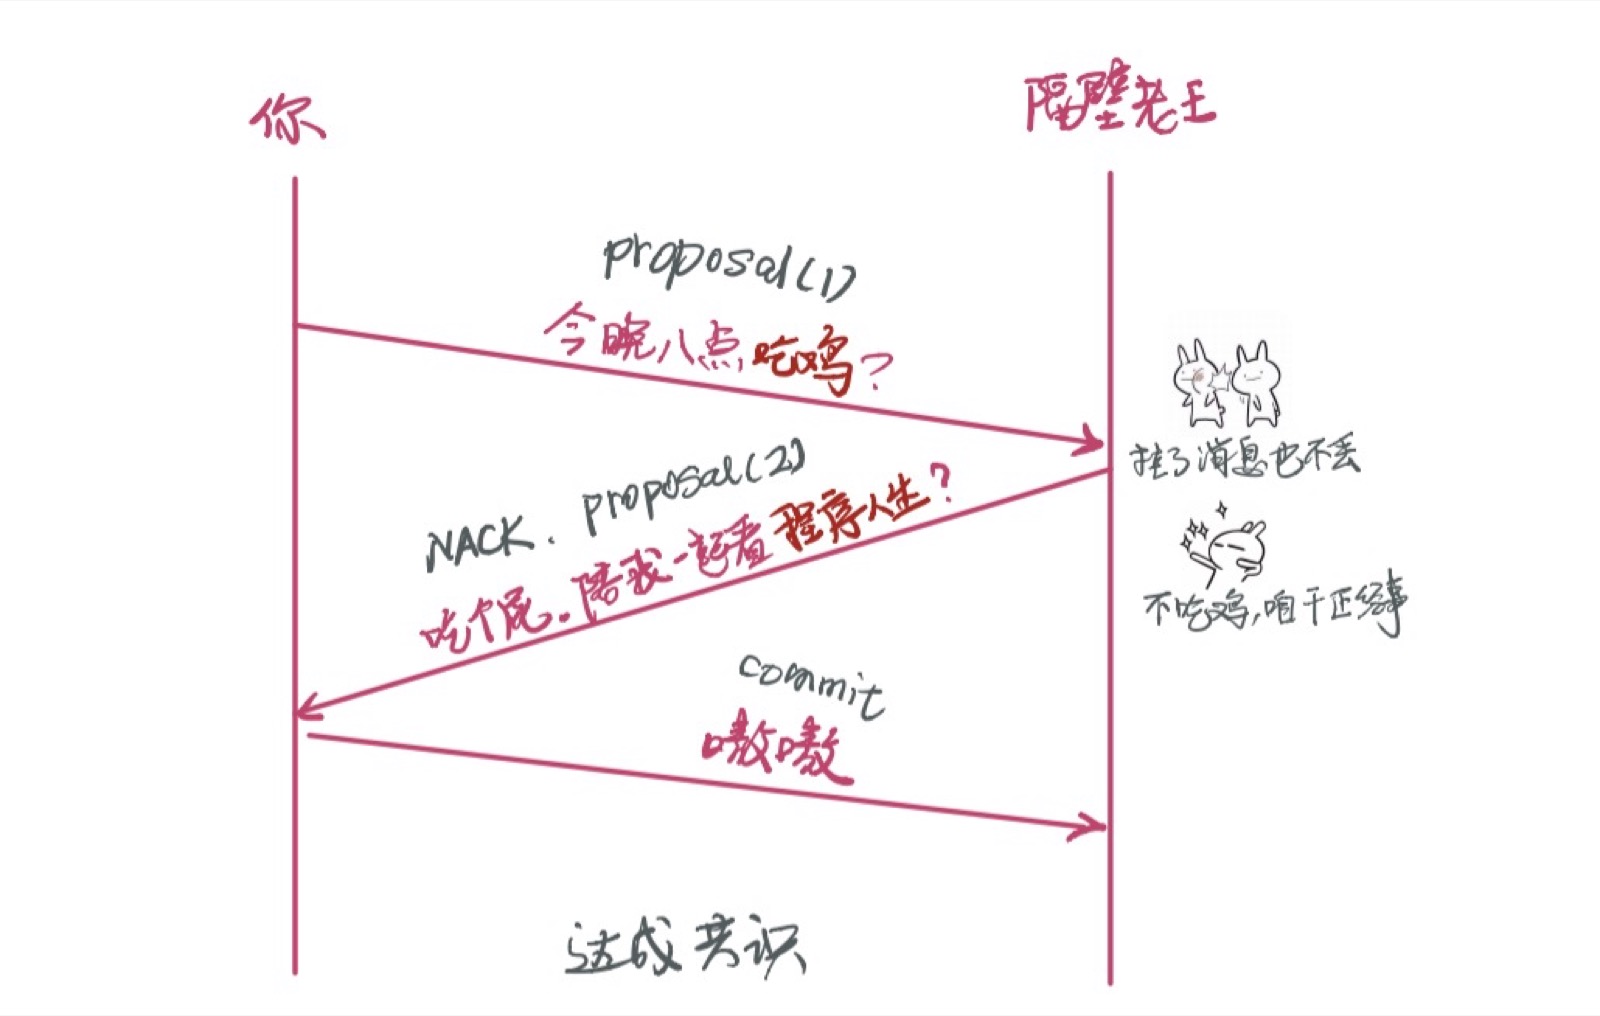 你
隔壁老王
proposal(1)
今晚八点吃鸡?
挂了消息也不丢
NACK. proposal(2)
吃个屁.陪我一起看程序人生?
不吃鸡,咱干正经事
commit
嗷嗷
达成共识